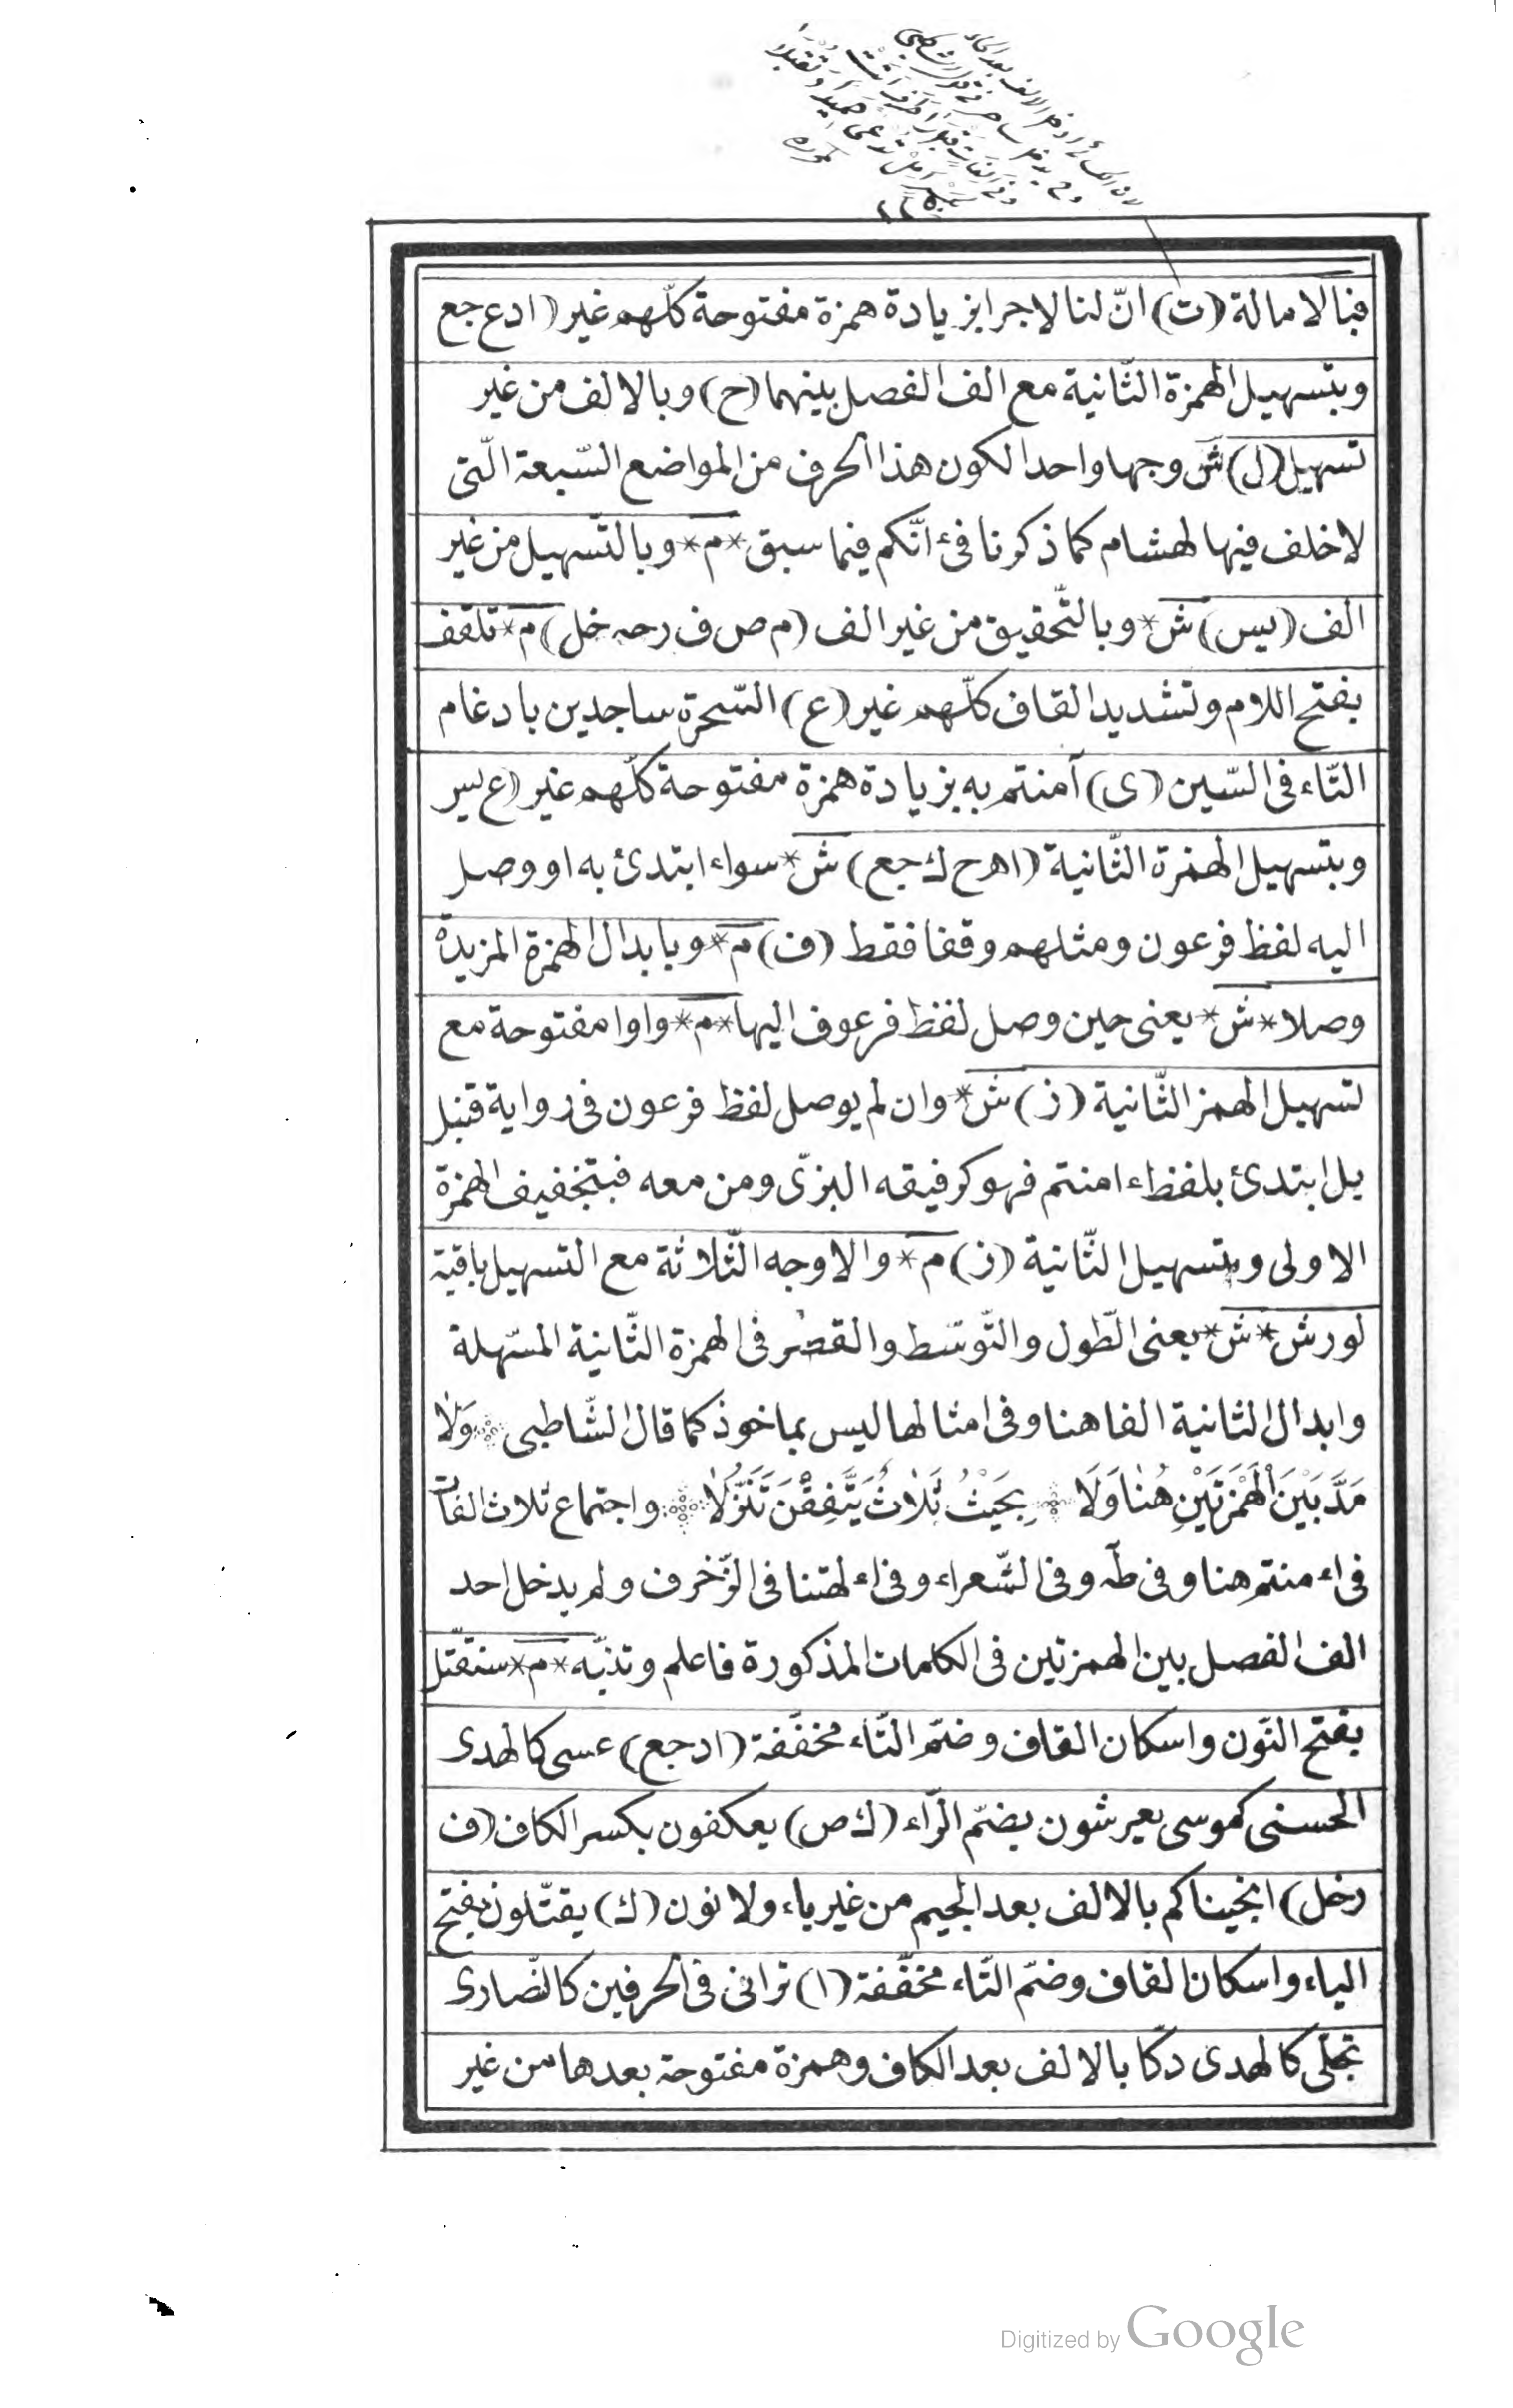 فبالامالة (ت) انّ لنا لاجرا بزيادة همزة مفتوحة كلّهم غير (ادع جع
وبتسهيل الهمزة الثّانية مع الف الفصل بينهما (ح) وبالالف من غير
تسهيل (ل) ش وجها واحدا لكون هذا الحرف من المواضع السّبعة الّتى
لا خلف فيها لهشام كما ذكرنا فى ءانّكم فيما سبق * م * وبالتّسهيل من غير
الف (يس) ش * وبالتّحقيق من غير الف (م ص ف رحه خل) م * تلقف
بفتح اللام وتشديد القاف كلّهم غير (ع) السّحرة ساجدين بادغام
التّاء فى السّين (ى) آمنتم به بزيادة همزة مفتوحة كلّهم غير (ع يس
وبتسهيل الهمزة الثّانية (اهح ك جع) ش * سواء ابتدئ به او وصل
اليه لفظ فرعون ومثلهم وقفا فقط (ف) م * وبابدال الهمزة المزيدة
وصلا * ش * يعنى حين وصل لفظ فرعون اليها * م * واوا مفتوحة مع
تسهيل الهمز الثّانية (ز) ش * وان لم يوصل لفظ فرعون فى رواية قنبل
بل ابتدئ بلفظ ءامنتم فهو كرفيقه البزّى ومن معه فبتخفيف الهمزة
الاولى وبتسهيل الثّانية (ز) م * والاوجه الثّلاثة مع التسهيل باقية
لورش * ش * يعنى الطّول والتّوسّط والقصر فى الهمزة الثّانية المسّهلة
وابدال الثانية الفا هنا وفى امثالها ليس بماخوذ كما قال الشّاطبى وَلَا
مَدَّ بَيْنَ الْهَمْزَتَيْنِ هُنَا وَلَا بِحَيْثُ ثَلَاثُ يَتَّفِقْنَ تَنَزُّلَا واجتماع ثلاث الفات
فى ءامنتم هنا وفى طه وفى الشّعراء وفى ءالهتنا فى الزّخرف ولم يدخل احد
الف الفصل بين الهمزتين فى الكلمات المذكورة فاعلم وتنبّه * م * سنقتّل
بفتح النّون واسكان القاف وضمّ التّاء مخفّفة (ا د جع) عسى كالهدى
الحسنى كموسى يعرشون بضمّ الرّاء (ك ص) يعكفون بكسر الكاف (ف
رخل) انجيناكم بالالف بعد الجيم من غير ياء ولا نون (ك) يقتّلون بفتح
الياء واسكان القاف وضمّ التّاء مخفّفة (ا) ترانى فى الحرفين كالنّصارى
تجلّى كالهدى دكّا بالالف بعد الكاف وهمزة مفتوحة بعدها من غير
Digitized by Google